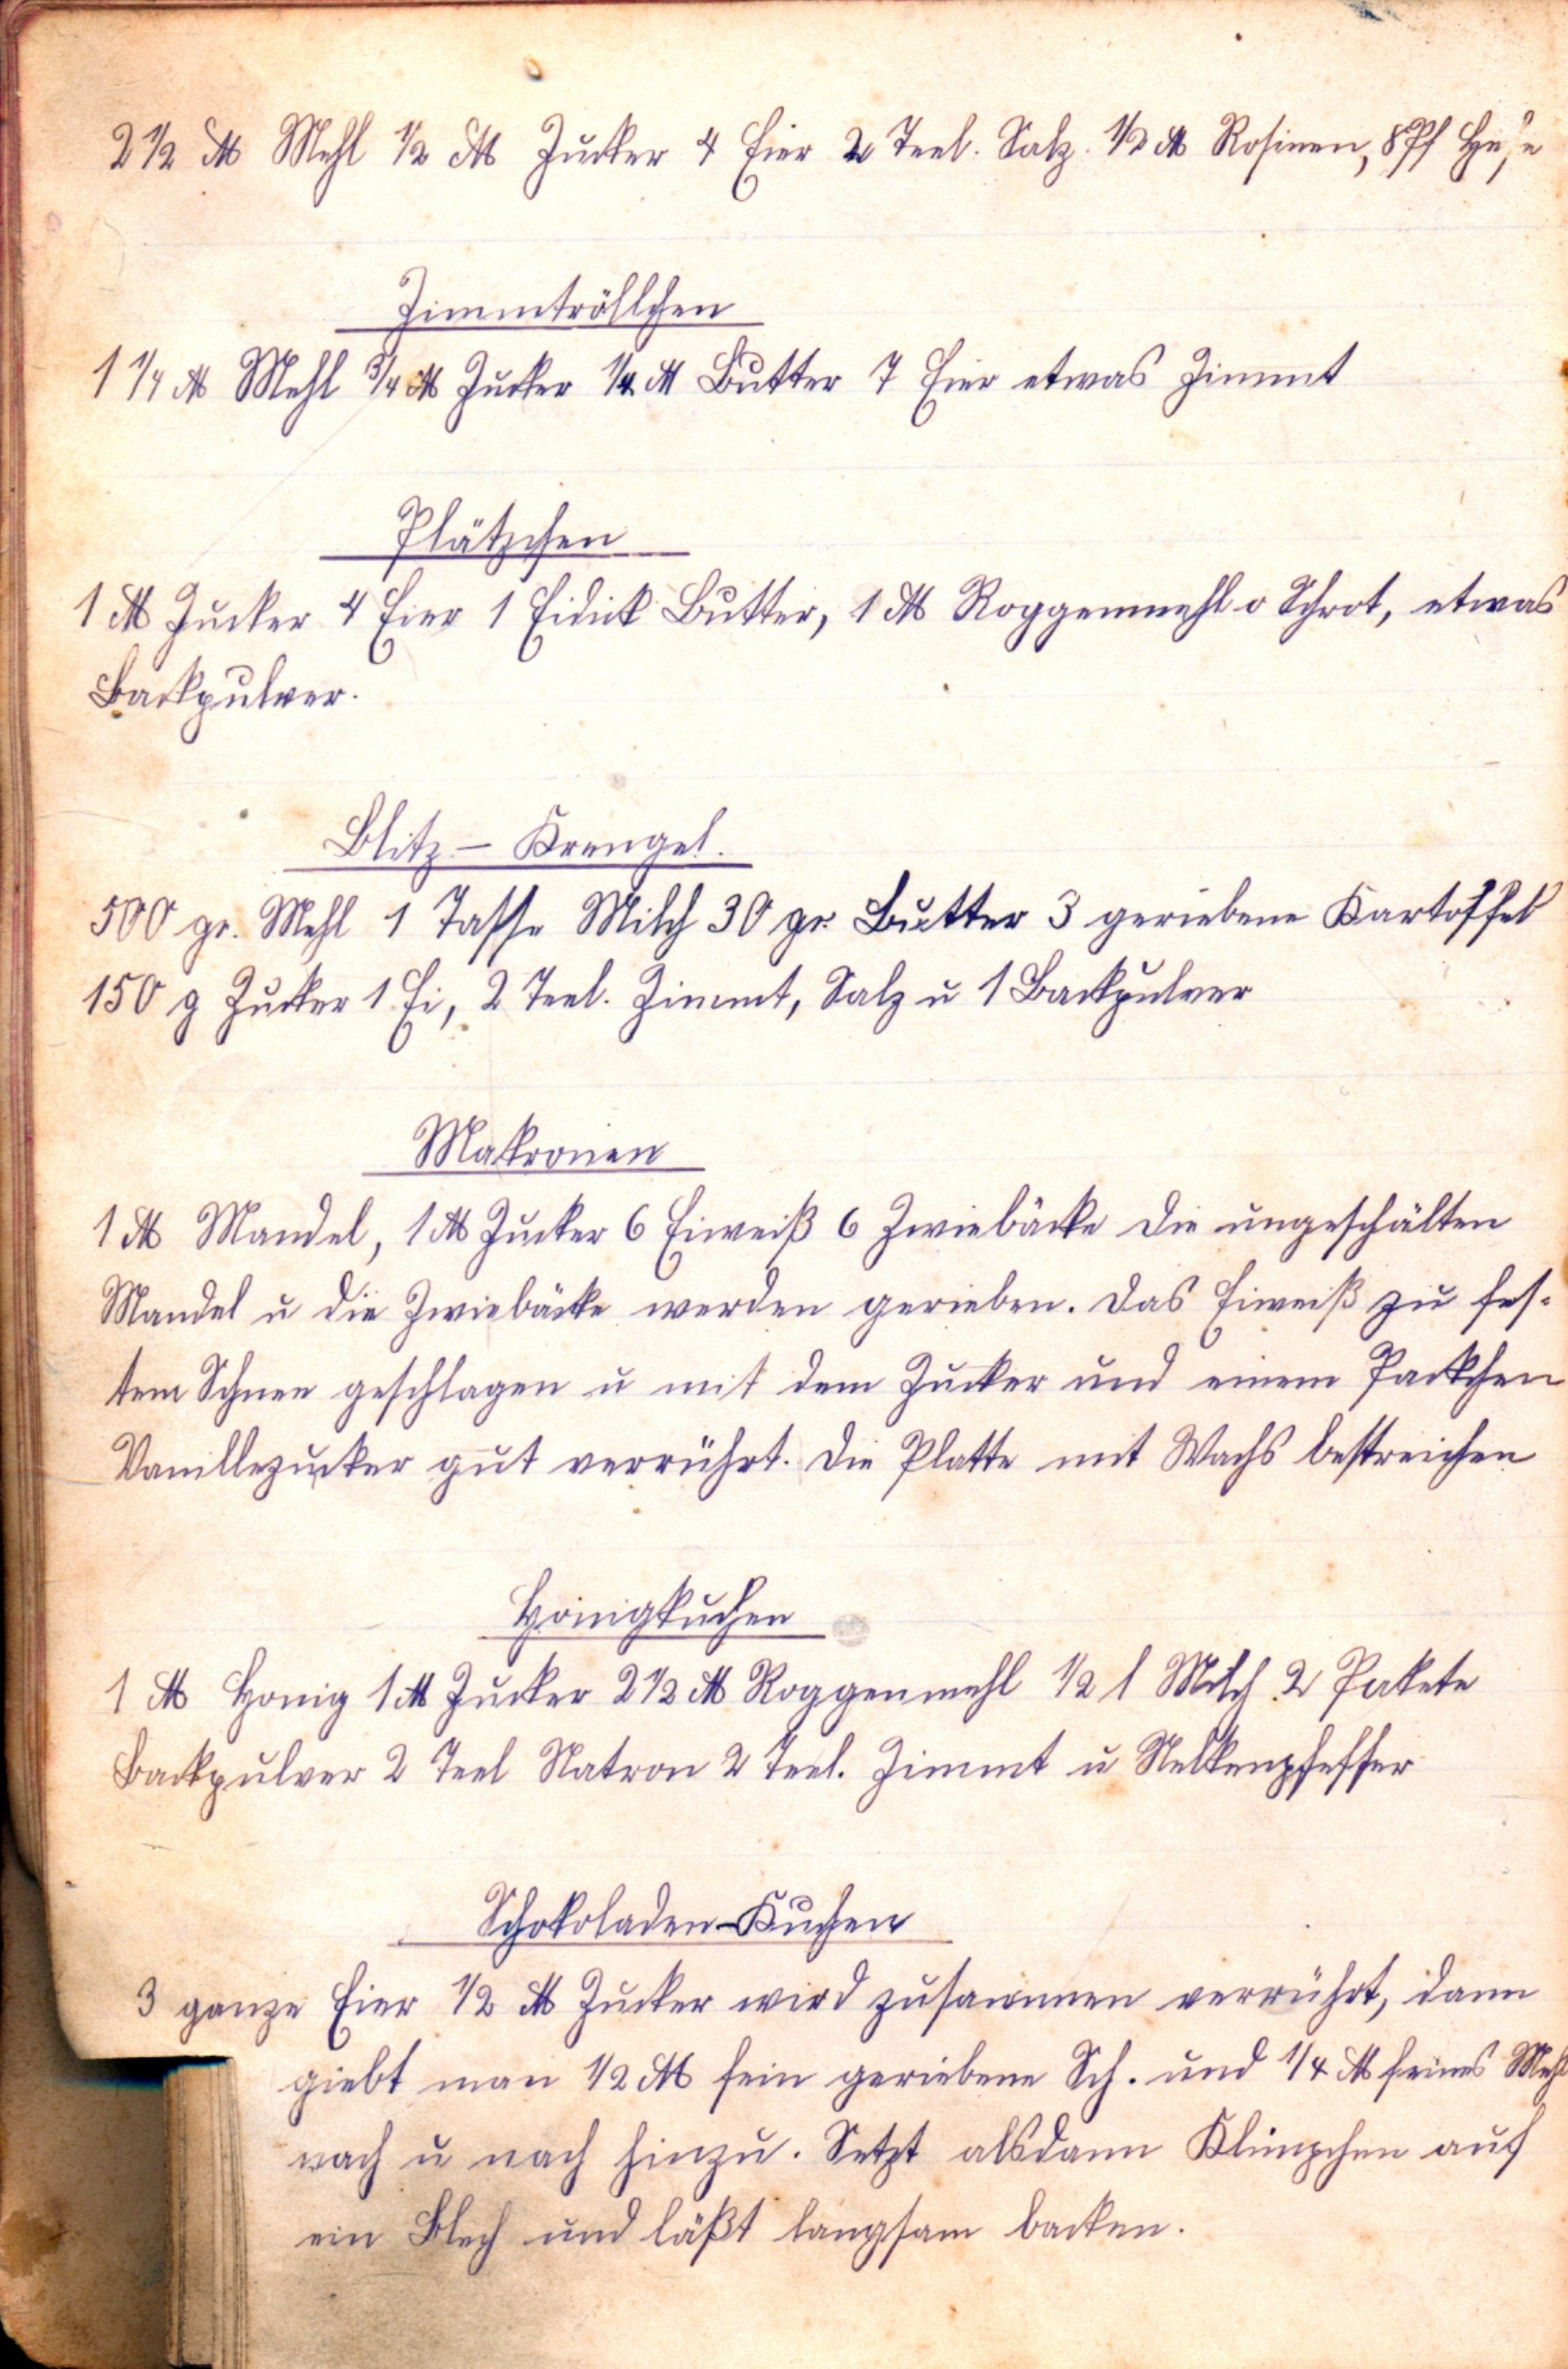 2 1/2 ℔ Mehl 1/2 ℔ Zucker 4 Eier 2 Teel. Salz. 1/2 ℔ Rosinen, 8 Pf Hefe
Zimmtröllchen
1 1/4 ℔ Mehl 3/4 ℔ Zucker 1/4 ℔ Butter 7 Eier etwas Zimmt
Plätzchen
1 ℔ Zucker 4 Eier 1 Eidick Butter, 1 ℔ Roggenmehl o Schrot, etwas
Backpulver.
Blitz - Krengel.
500 gr. Mehl 1 Tasse Milch 30 gr. Butter 3 geriebene Kartoffel
150 g Zucker 1 Ei, 2 Teel. Zimmt, Salz u 1 Backpulver
Makronen
1 ℔ Mandel, 1 ℔ Zucker 6 Eiweiß 6 Zwiebäcke Die ungeschälten
Mandel u die Zwiebäcke werden gerieben. Das Eiweiß zu fes-
tem Schnee geschlagen u mit dem Zucker und einem Packchen
Vanillezucker gut verrührt. Die Platte mit Wachs bestreichen
Honigkuchen
1 ℔ Honig 1 ℔ Zucker 2 1/2 ℔ Roggenmehl 1/2 l Milch 2 Pakete
Backpulver 2 Teel Natron 2 Teel. Zimmt u Nelkenpfeffer
Schokoladen-Kuchen
3 ganze Eier 1/2 ℔ Zucker wird zusammen verrührt, dann
giebt man 1/2 ℔ fein geriebene Sch. und 1/4 ℔ feines Mehl
nach u nach hinzu. Setzt alsdann Klümpchen auf
ein Blech und läßt langsam backen.